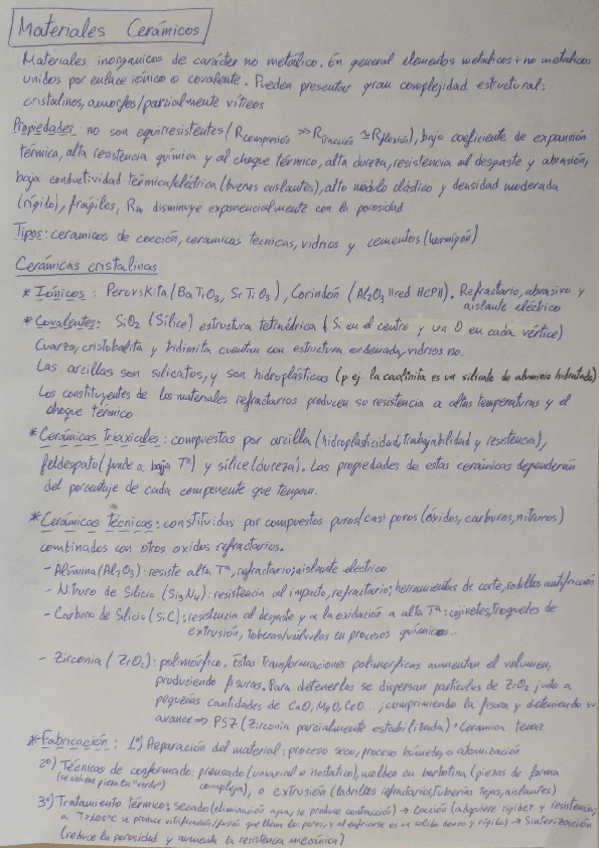 Materiales Cerámicos
Materiales inorganicos de carácter no metálico. En general elementos metalicos + no metalicos
unidos por enlace iónico o covalente. Pueden presentar gran complejidad estructural:
cristalinos, amorfos/parcialmente vítreos
Propiedades: no son equirresistentes (Rcompresión >> Rtracción ≃ Rflexión), bajo coeficiente de expansión
térmica, alta resistencia química y al choque térmico, alta dureza, resistencia al desgaste y abrasión,
baja conductividad térmica/eléctrica (buenos aislantes), alto módulo elástico y densidad moderada
(rígido), frágiles, Rm disminuye exponencialmente con la porosidad
Tipos: ceramicos de cocción, ceramicas tecnicas, vidrios y cementos (hormigón)
Cerámicas cristalinas
* Iónicos: Perovskita (BaTiO3, SrTiO3), Corindón (Al2O3 || red HCP ||). Refractario, abrasivo y
aislante eléctrico
* Covalentes: SiO2 (Sílice) estructura tetraédrica (Si en el centro y un O en cada vértice)
Cuarzo, cristobalita y tridimita cuentan con estructura ordenada, vidrios no.
Las arcillas son silicatos, y son hidroplásticas (p ej la caolinita es un silicato de aluminio hidratado)
Los constituyentes de los materiales refractarios producen su resistencia a altas temperaturas y el
choque térmico
* Cerámicas triaxiales: compuestas por arcilla (hidroplasticidad, trabajabilidad y resistencia),
feldespato (funde a baja Tª) y sílice (dureza). Las propiedades de estas cerámicas dependerán
del porcentaje de cada componente que tengan.
* Cerámicas técnicas: constituidas por compuestos puros/casi puros (óxidos, carburos, nitruros)
combinados con otros oxidos refractarios.
- Alúmina (Al2O3): resiste alta Tª, refractario; aislante electrico
- Nitruro de Silicio (Si3N4): resistencia al impacto, refractario; herramientas de corte, rodillos antifricción
- Carburo de Silicio (SiC): resistencia al desgaste y a la oxidación a alta Tª: cojinetes, troqueles de
extrusión, toberas/válvulas en procesos químicos..
- Zirconia (ZrO2): polimórfico. Estas transformaciones polimorficas aumentan el volumen,
produciendo fisuras. Para detenerlas se dispersan partículas de ZrO2 junto a
pequeñas cantidades de CaO, MgO, CeO... ; comprimiendo la fisura y deteniendo su
avance ⇒ PSZ (Zirconia parcialmente estabilizada) · Ceramica tenaz
* Fabricación: 1º) Reparación del material: proceso seco, proceso húmedo, o atomización
2º) Técnicas de conformado: prensado (uniaxial o isostatico), moldeo en barbotina (piezas de forma
(se obtiene pieza en "verde") compleja), o extrusión (ladrillos refractarios, tuberías, tejas, aislantes)
3º) Tratamiento térmico: secado (eliminación agua, se produce contracción) → Cocción (adquiere rigidez y resistencia,
a se produce vitrificación/fusión que llena los poros, y al enfriarse es un solido denso y rígido) → Sinterización
(reduce la porosidad y aumenta la resistencia mecánica)